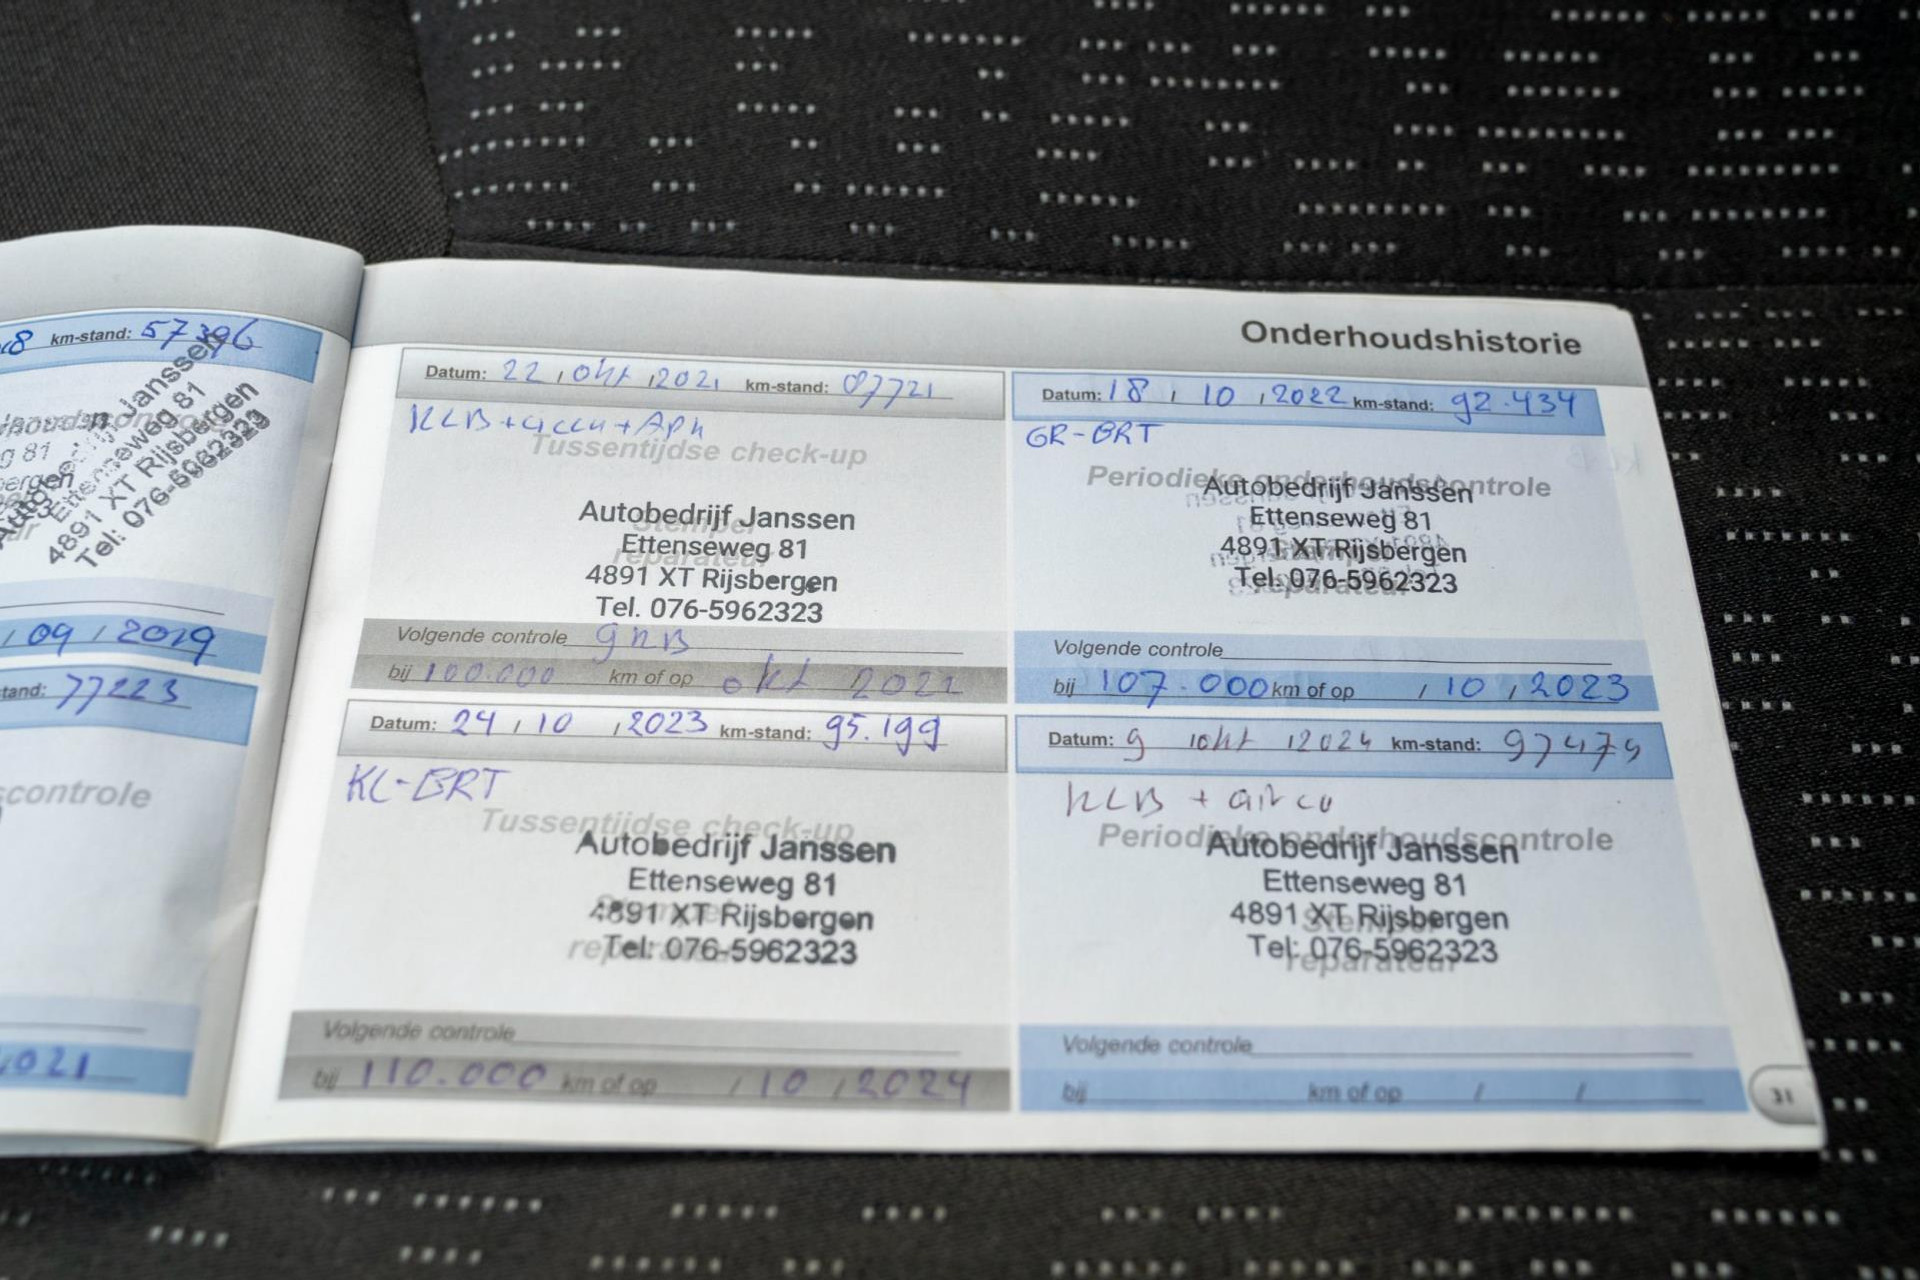 km-stand: 57396
4891 XT Rijsbergen
Tel: 076-5962323
09 / 2019
77223
controle
021
Onderhoudshistorie
Datum: 22 / okt / 2021 km-stand: 87721
KLB + accu + APK
Tussentijdse check-up
Stempel
reparateur
Autobedrijf Janssen
Ettenseweg 81
4891 XT Rijsbergen
Tel. 076-5962323
Volgende controle GRB
bij 100.000 km of op okt 2022
Datum: 18 / 10 / 2022 km-stand: 92.434
GR-BRT
Periodieke onderhoudscontrole
Autobedrijf Janssen
Ettenseweg 81
4891 XT Rijsbergen
Tel: 076-5962323
reparateur
Volgende controle
bij 107.000 km of op / 10 / 2023
Datum: 24 / 10 / 2023 km-stand: 95.199
KL-BRT
Tussentijdse check-up
Autobedrijf Janssen
Ettenseweg 81
4891 XT Rijsbergen
Tel: 076-5962323
Volgende controle
bij 110.000 km of op / 10 / 2024
Datum: 9 / okt / 2024 km-stand: 97479
KLB + airco
Periodieke onderhoudscontrole
Autobedrijf Janssen
Ettenseweg 81
4891 XT Rijsbergen
Stempel
Tel: 076-5962323
reparateur
Volgende controle
bij km of op / /
31